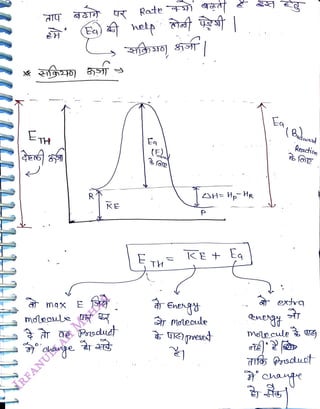 ताप बढ़ाने पर Rate क्यों बढ़ती है इस हेतु
हमें Ea की help लेनी पड़ेगी।
सक्रियण ऊर्जा
* सक्रियण ऊर्जा →
E TH
देहली ऊर्जा
Ea
के लिए
Ea
(Backward
Reaction
के लिए
R
KE
ΔH = HP - HR
P
E TH = KE + Ea
वो max E जिसे
molecule पार कर
दे तो वह Product
में change हो सके
वो Energy
जो molecule
के पास present
है।
वो extra
energy जो
molecule के पास
नहीं है
ताकि Product
में change
हो सके।